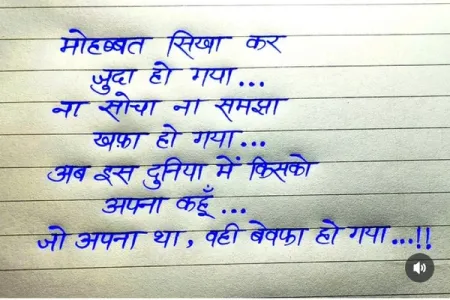 मोहब्बत सिखा कर
जुदा हो गया...
ना सोचा ना समझा
खफ़ा हो गया...
अब इस दुनिया में किसको
अपना कहूँ...
जो अपना था, वही बेवफा हो गया...!!